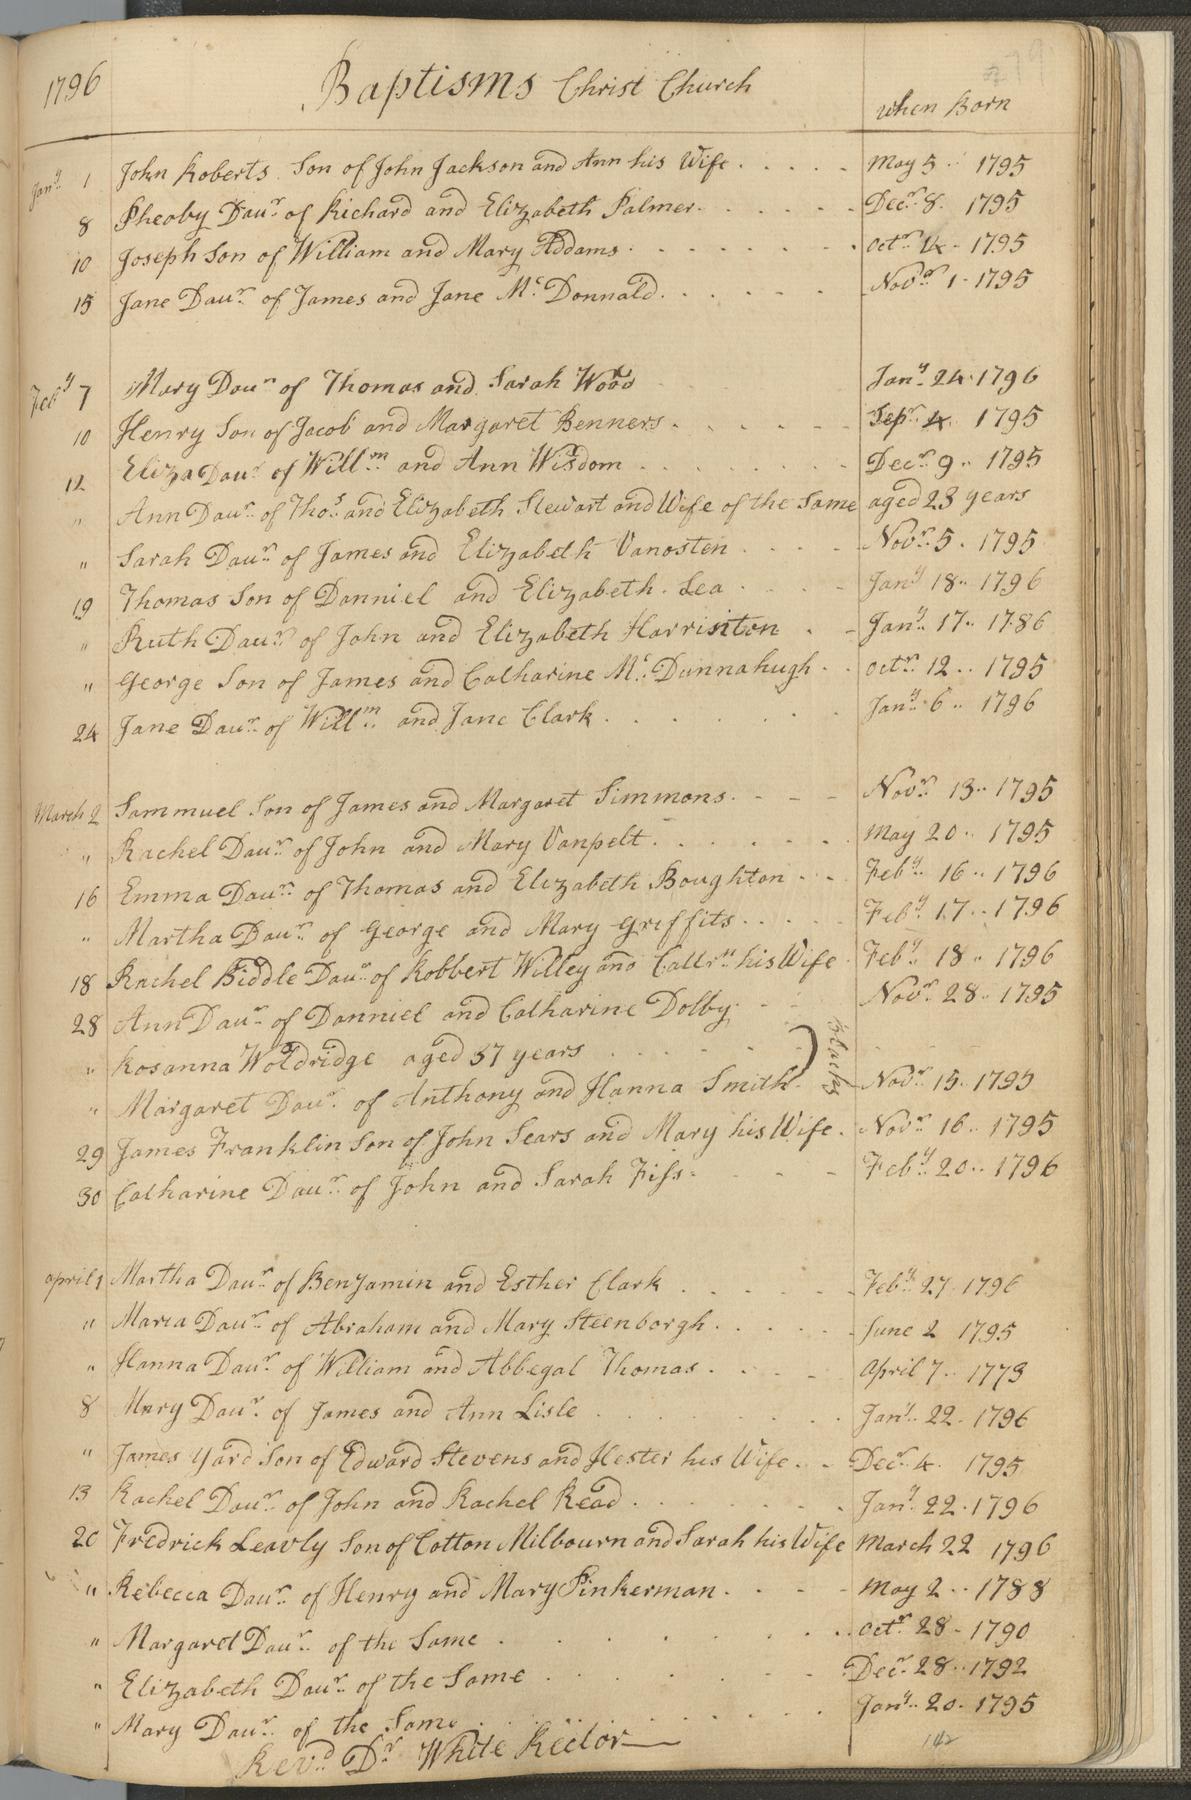 1796 Baptisms Christ Church when Born
Jany 1 John Roberts Son of John Jackson and Ann his Wife May 5 1795
8 Pheoby Daur of Richard and Elizabeth Palmer Decr 8 1795
10 Joseph Son of William and Mary Addams octr 14 1795
15 Jane Daur of James and Jane Mc Donnald Novr 1 1795
Feby 7 Mary Daur of Thomas and Sarah Wood Jany 24 1796
10 Henry Son of Jacob and Margaret Benners Sepr 4 1795
12 Eliza Daur of Willm and Ann Wisdom Decr 9 1795
" Ann Daur of Thos and Elizabeth Stewart and Wife of the Same aged 23 years
" Sarah Daur of James and Elizabeth Vanosten Novr 5 1795
19 Thomas Son of Danniel and Elizabeth Lea Jany 18 1796
" Ruth Daur of John and Elizabeth Harrisiton Jany 17 1786
" George Son of James and Catharine Mc Dunnahugh octr 12 1795
24 Jane Daur of Willm and Jane Clark Jany 6 1796
March 2 Sammuel Son of James and Margaret Simmons Novr 13 1795
" Rachel Daur of John and Mary Vanpelt May 20 1795
16 Emma Daur of Thomas and Elizabeth Boughton Feby 16 1796
" Martha Daur of George and Mary Griffits Feby 17 1796
18 Rachel Biddle Daur of Robbert Willey and his Wife Feby 18 1796
28 Ann Daur of Danniel and Catharine Dolby Novr 28 1795
" Rosanna Woldridge aged 37 years
" Margaret Daur of Anthony and Hanna Smith Blacks Novr 15 1795
29 James Franklin Son of John Sears and Mary his Wife Novr 16 1795
30 Catharine Daur of John and Sarah Fiss Feby 20 1796
april 1 Martha Daur of Benjamin and Esther Clark Feby 27 1796
" Maria Daur of Abraham and Mary Steenborgh June 2 1795
" Hanna Daur of William and Abbegal Thomas april 7 1773
8 Mary Daur of James and Ann Lisle Jany 22 1796
" James Yard Son of Edward Stevens and Hester his Wife Decr 4 1795
13 Rachel Daur of John and Rachel Read Jany 22 1796
20 Fredrick Leavly Son of Cotton Milbourn and Sarah his Wife March 22 1796
" Rebecca Daur of Henry and Mary Pinkerman May 2 1788
" Margaret Daur of the Same octr 28 1790
" Elizabeth Daur of the Same Decr 28 1792
" Mary Daur of the Same Jany 20 1795
Revd Dr White Rector